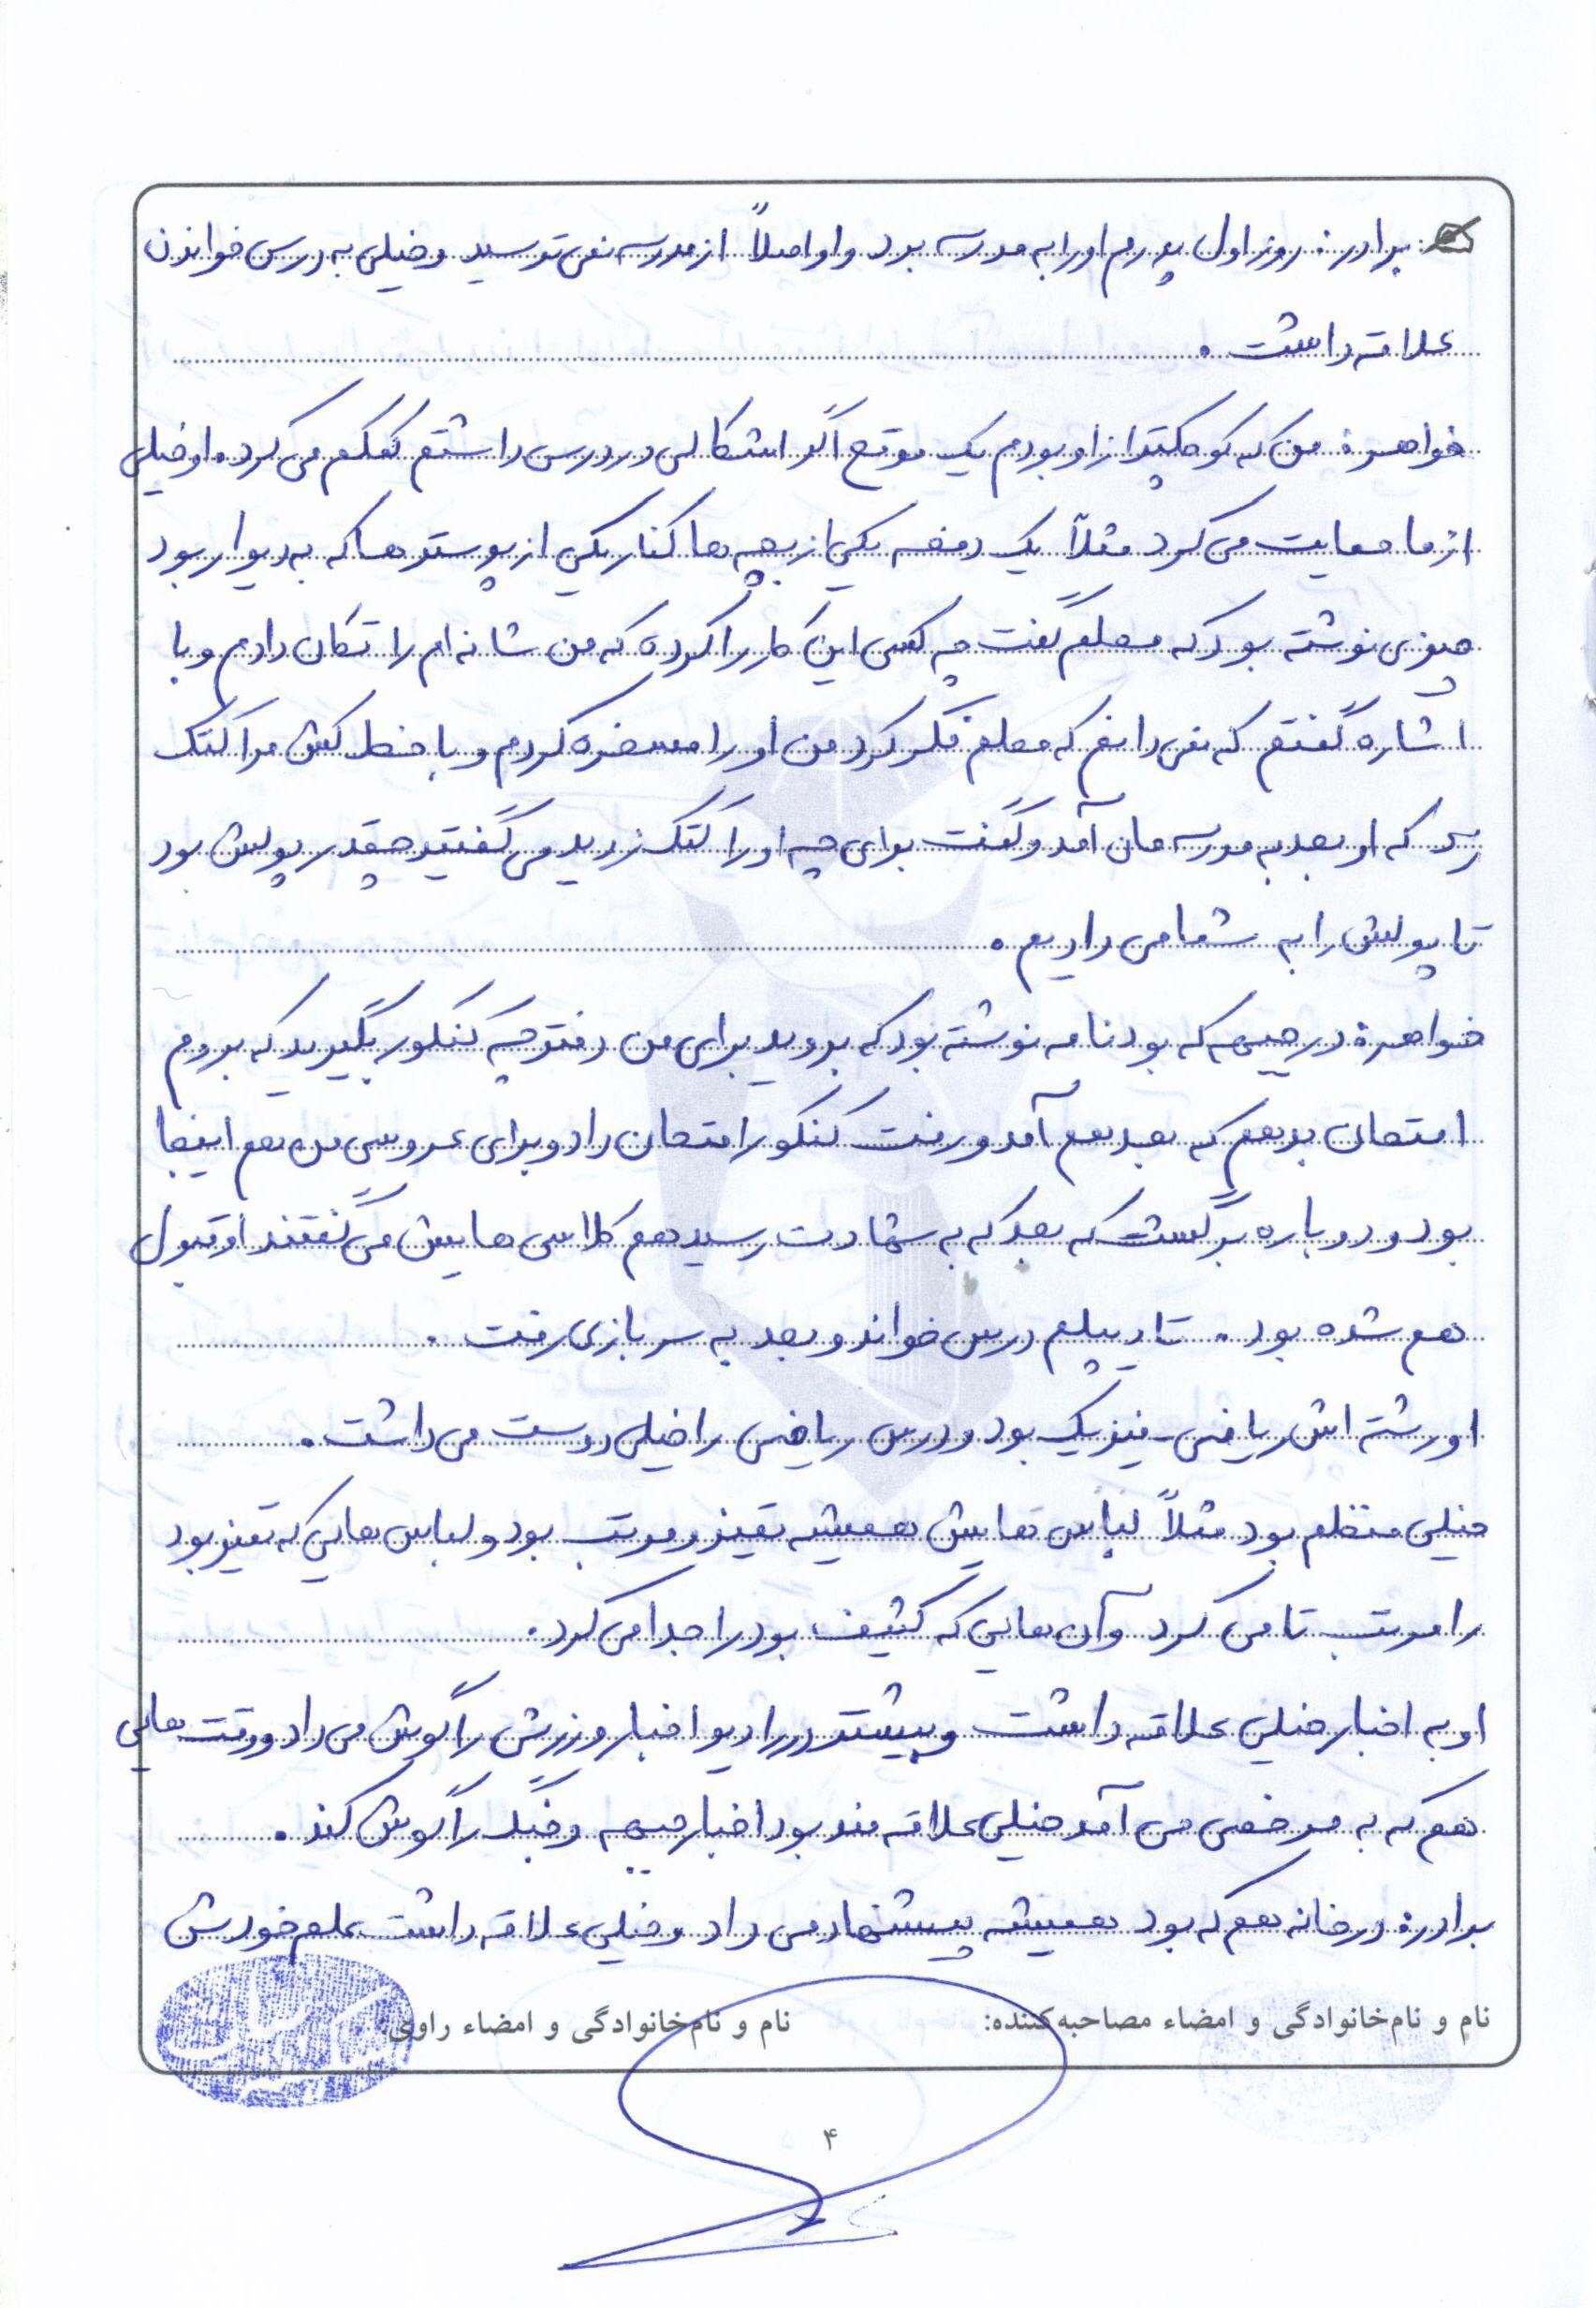 برادر: روز اول پدرم او را به مدرسه برد و او اصلاً از مدرسه نمی ترسید و خیلی به درس خواندن
علاقه داشت .
خواهر: من که کوچکتر از او بودم یک موقع اگر اشکالی در درس داشتم کمکم می کرد. او خیلی
از ما حمایت می کرد مثلاً یک دفعه یکی از بچه ها کنار یکی از پوسترها که به دیوار بود
چیزی نوشته بود که معلم گفت چه کسی این کار را کرده که من شانه ام را تکان دادم و با
اشاره گفتم که نمی دانم که معلم فکر کرد من او را مسخره کردم و با خط کش مرا کتک
زد که او بعد به مدرسه مان آمد و گفت برای چه او را کتک زدید می گفتید چقدر پولش بود
تا پولش را به شما می دادیم .
خواهر: در جبهه که بود نامه نوشته بود که بروید برای من دفترچه کنکور بگیرید که بروم
امتحان بدهم که بعد هم آمد و رفت کنکور امتحان داد و برای عروسی من هم اینجا
بود و دوباره برگشت که بعد که به شهادت رسید هم کلاسی هایش می گفتند او قبول
هم شده بود . تا دیپلم درس خواند و بعد به سربازی رفت .
او رشته اش ریاضی - فیزیک بود و درس ریاضی را خیلی دوست می داشت .
خیلی منظم بود مثلاً لباس هایش همیشه تمیز و مرتب بود و لباس هایی که تمیز بود
را مرتب تا می کرد و آن هایی که کثیف بود را جدا می کرد .
او به اخبار خیلی علاقه داشت و بیشتر در رادیو اخبار ورزش را گوش می داد و وقت هایی
هم که به مرخصی می آمد خیلی علاقه مند بود اخبار جبهه و جنگ را گوش کند .
برادر: در خانه هم که بود همیشه پیشنهاد می داد و خیلی علاقه داشت علم خودش
نام و نام‌خانوادگی و امضاء مصاحبه‌کننده:
نام و نام‌خانوادگی و امضاء راوی:
۴